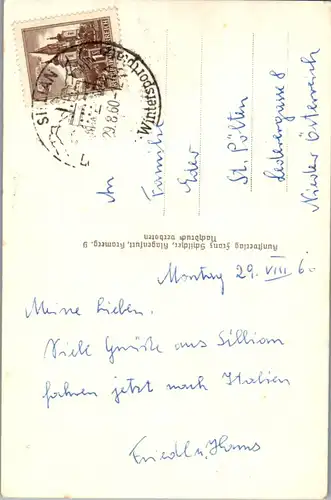 SILLIAN
29.8.60
Wintersportplatz
An
Familie
Eder
St. Pölten
Lederergasse 8
Nieder Österreich
Kunstverlag Franz Schilcher, Klagenfurt, Kramerg. 9
Nachdruck verboten
Montag 29. VIII 60
Meine Lieben.
Viele Grüße aus Sillian
fahren jetzt nach Italien
Friedl u. Hans